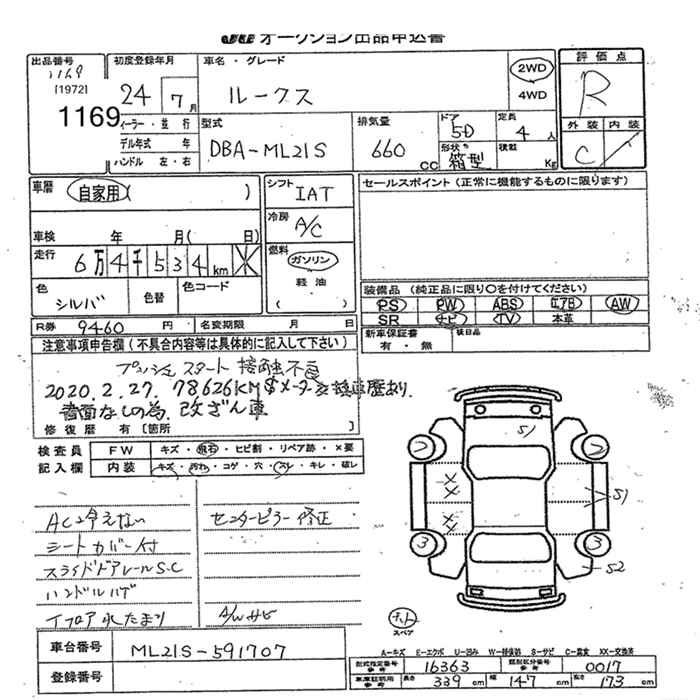 JU オークション出品申込書
出品番号 初度登録年月 車名・グレード 評価点
1169
[1972]
1169
24 7月 ルークス 2WD 4WD R
ィーラー・並行 型式 排気量 ドア 定員 外装 内装
デル年式 年 DBA-ML21S 660CC 5D 4人 C
ハンドル 左・右 形状 箱型 積載 Kg
車歴 自家用( ) シフト IAT セールスポイント(正常に機能するものに限ります)
車検 年 月( 日) 冷房 A/C
走行 6万4千534km 燃料 ガソリン
軽油
( )
色 シルバ 色替 色コード
装備品(純正品に限り○を付けてください)
PS PW ABS エアB AW
SR ナビ TV 本革
R券 9460円 名変期限 月 日
新車保証書 後日品
有・無
注意事項申告欄(不具合内容等は具体的に記入して下さい)
プッシュスタート 接触不良
2020.2.27. 78,626KM$メーター交換車歴あり.
書面なしの為 改ざん車
修復歴 有〔箇所 〕
検査員 FW キズ・飛石・ヒビ割・リペア跡・×要
記入欄 内装 キズ・汚れ・コゲ・穴・スレ・キレ・破レ
ACと冷えない センターピラー修正
シートカバー付
スライドドアレールS.C
ハンドルハゲ
Fフロア水たまり A/Wサビ
S1
2 2
S1
3 3
S2
スペア
車台番号 ML21S-591707
登録番号
A-キズ E-エクボ U-凹み W-補修跡 S-サビ C-腐食 XX-交換済
型式指定番号 参考 16363 類別区分番号 参考 0017
車車証明用 参考 長さ 339cm 幅 147cm 高さ 173cm